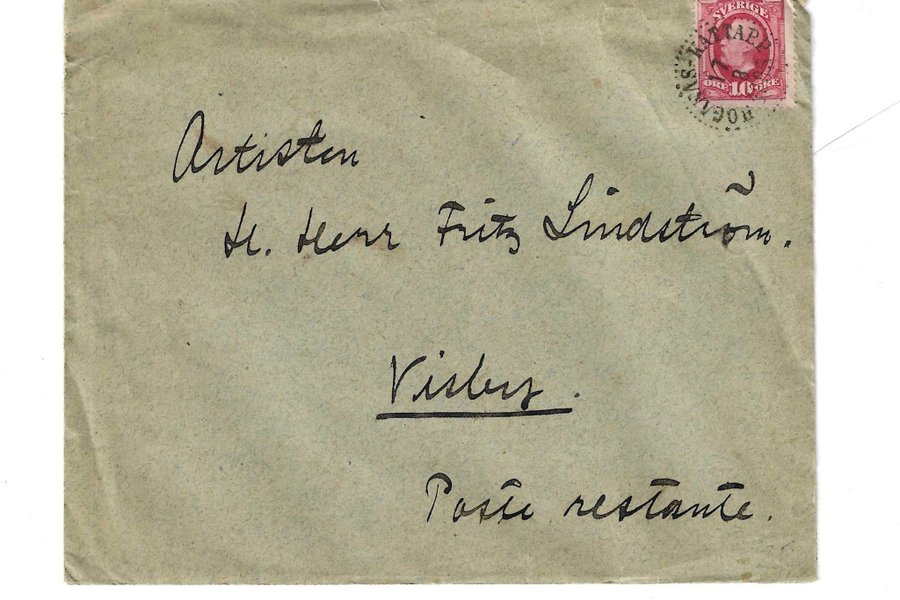 SVERIGE
ÖRE 10 ÖRE
HÖGANÄS-KATTARP
17 8
Artisten
H. Herr Fritz Lindström.
Visby.
Poste restante.